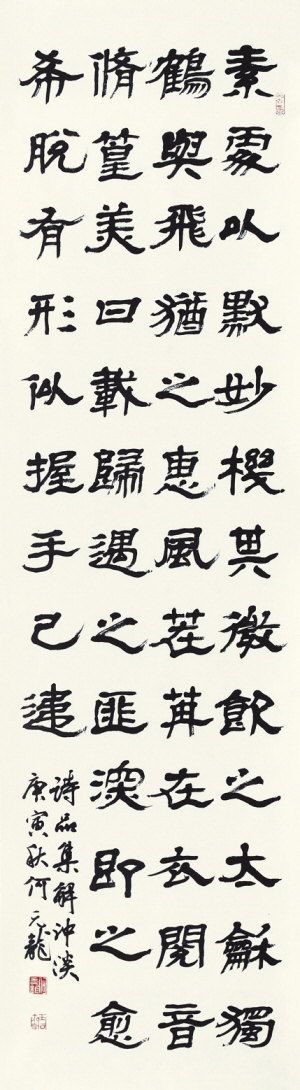 素處以默妙機其微飲之太龢獨
鶴與飛猶之惠風荏苒在衣閱音
脩篁美曰載歸遇之匪深即之愈
希脫有形似握手已違
詩品集解沖淡
庚寅秋何元龍